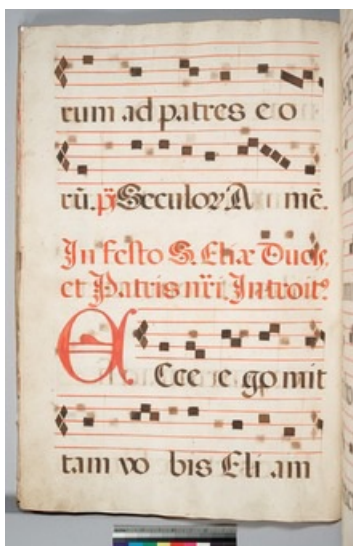 rum ad patres eo
rū. ps̄ Seculor A mē.
In festo S. Eliæ Ducis,
et Patris nr̄i. Introit⁹
ECce ego mit
tam vo bis Eli am